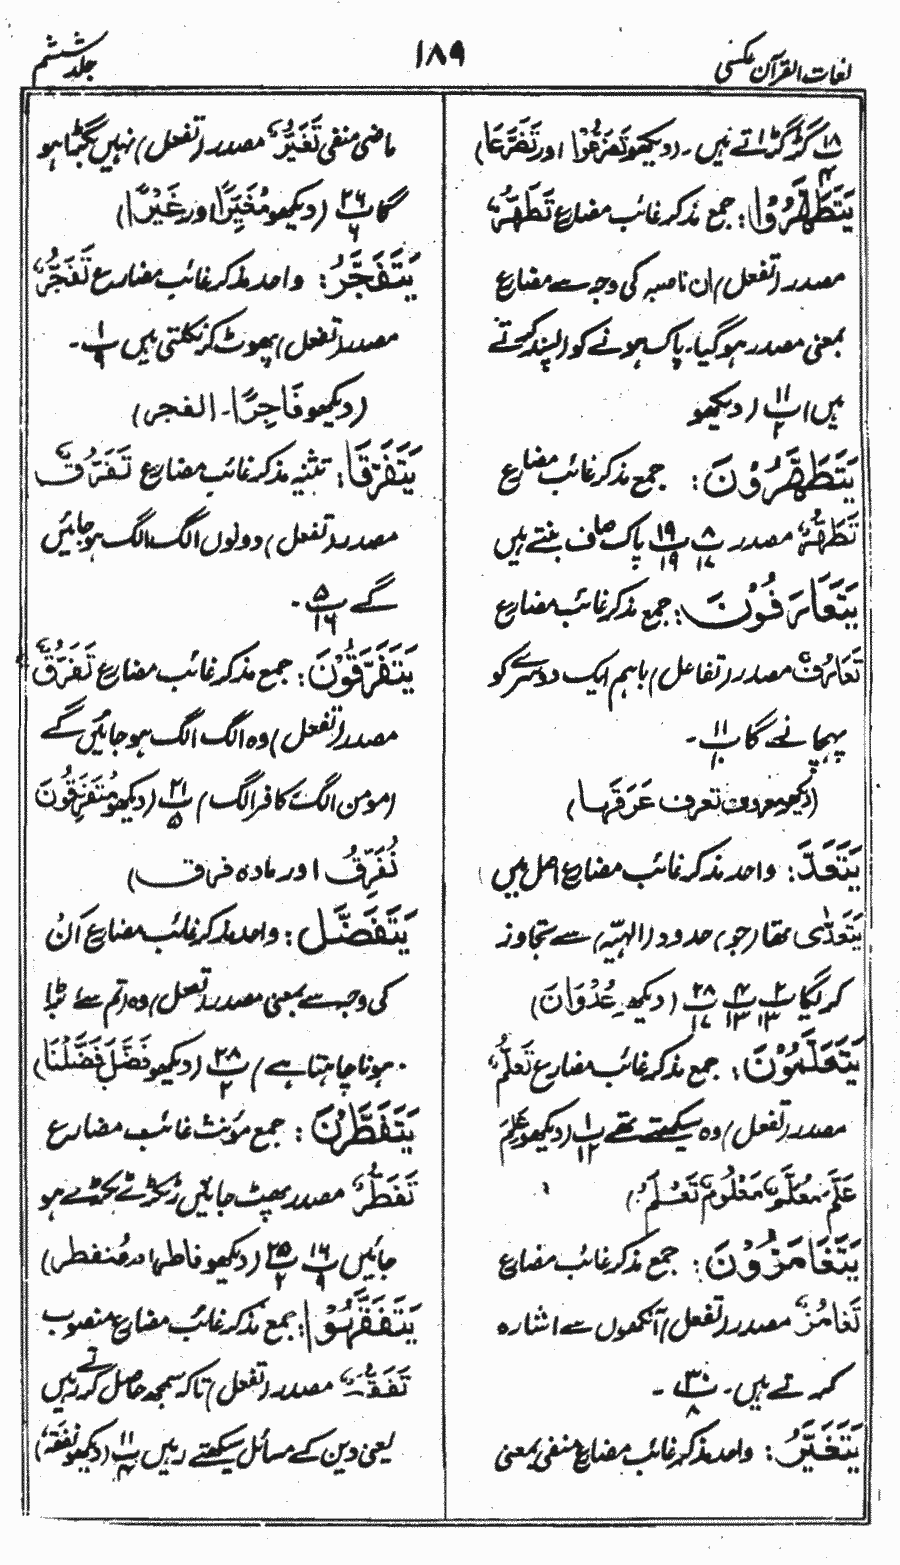 لغات القرآن عکسی
۱۸۹
جلد ششم
۱۸ ب ۴ گڑگڑاتے ہیں۔ (دیکھو تَضَرَّعُوْا اور تَضَرُّعًا)
یَتَطَهَّرُوْا: جمع مذکر غائب مضارع تَطَهُّرٌ
مصدر (تفعل) ان ناصبہ کی وجہ سے مضارع
بمعنی مصدر ہو گیا۔ پاک ہونے کو (پسند کرتے
ہیں) ب ۱۱/۲ (دیکھو
یَتَطَهَّرُوْنَ: جمع مذکر غائب مضارع
تَطَهُّرٌ مصدر ب ۸/۱۷ ب ۱۹/۱۹ پاک صاف بنتے ہیں
یَتَعَارَفُوْنَ: جمع مذکر غائب مضارع
تَعَارُفٌ مصدر (تفاعل) باہم ایک دوسرے کو
پہچانے گا ب ۱۱/۱۰۔
(دیکھو معروف تعرف عَرَفَہا)
یَتَعَدَّ: واحد مذکر غائب مضارع اصل میں
یَتَعَدّٰی تھا (جو) حدود (الٰہیّہ) سے تجاوز
کر لیگا ب ۲/۱۳ ب ۴/۱۳ ب ۲۸/۱۷ (دیکھو عُدْوَانَ)
یَتَعَلَّمُوْنَ: جمع مذکر غائب مضارع تَعَلُّمٌ
مصدر (تفعل) وہ سیکھتے تھے ب ۱/۱۲ (دیکھو عِلْمَ
عَلَّمَ مُعَلَّمٌ مَعْلُومٌ تَعَلَّمَ)
یَتَغَامَزُوْنَ: جمع مذکر غائب مضارع
تَغَامُزٌ مصدر (تفعل) آنکھوں سے اشارہ
کرتے ہیں۔ ب ۳۰/۸۔
یَتَغَیَّرُ: واحد مذکر غائب مضارع منفی بمعنی
ماضی منفی تَغَیُّرٌ مصدر (تفعل) نہیں بگڑا ہو
گا ب ۲۶/۶ (دیکھو مُغَیِّرًا اور غَیْرًا)
یَتَفَجَّرُ: واحد مذکر غائب مضارع تَفَجُّرٌ
مصدر (تفعل) پھوٹ کر نکلتی ہیں ب ۱/۹۔
(دیکھو فَاجِرًا۔ الفجر)
یَتَفَرَّقَا: تثنیہ مذکر غائب مضارع تَفَرُّقٌ
مصدر (تفعل) دونوں الگ الگ ہو جائیں
گے ب ۵/۱۶۔
یَتَفَرَّقُوْنَ: جمع مذکر غائب مضارع تَفَرُّقٌ
مصدر (تفعل) وہ الگ الگ ہو جائیں گے
(مومن الگ کافر الگ) ب ۲۱/۵ (دیکھو مُتَفَرِّقُونَ
نُفَرِّقُ اور مادہ فرق)
یَتَفَضَّلَ: واحد مذکر غائب مضارع اَنْ
کی وجہ سے بمعنی مصدر (تفعل) وہ (تم سے) بڑا
ہونا چاہتا ہے) ب ۲۸/۲ (دیکھو فَضَّلَ فَضَّلْنَا)
یَتَفَطَّرْنَ: جمع مؤنث غائب مضارع
تَفَطُّرٌ مصدر پھٹ جائیں ٹکڑے ٹکڑے ہو
جائیں ب ۱۶/۹ ب ۲۵/۲ (دیکھو فاطر اور مُنفطر)
یَتَفَقَّهُوْا: جمع مذکر غائب مضارع منصوب
تَفَقُّهٌ مصدر (تفعل) تاکہ سمجھ حاصل کرتے رہیں
یعنی دین کے مسائل سیکھتے رہیں ب ۱۱/۴ (دیکھو نَفْقَہُ)